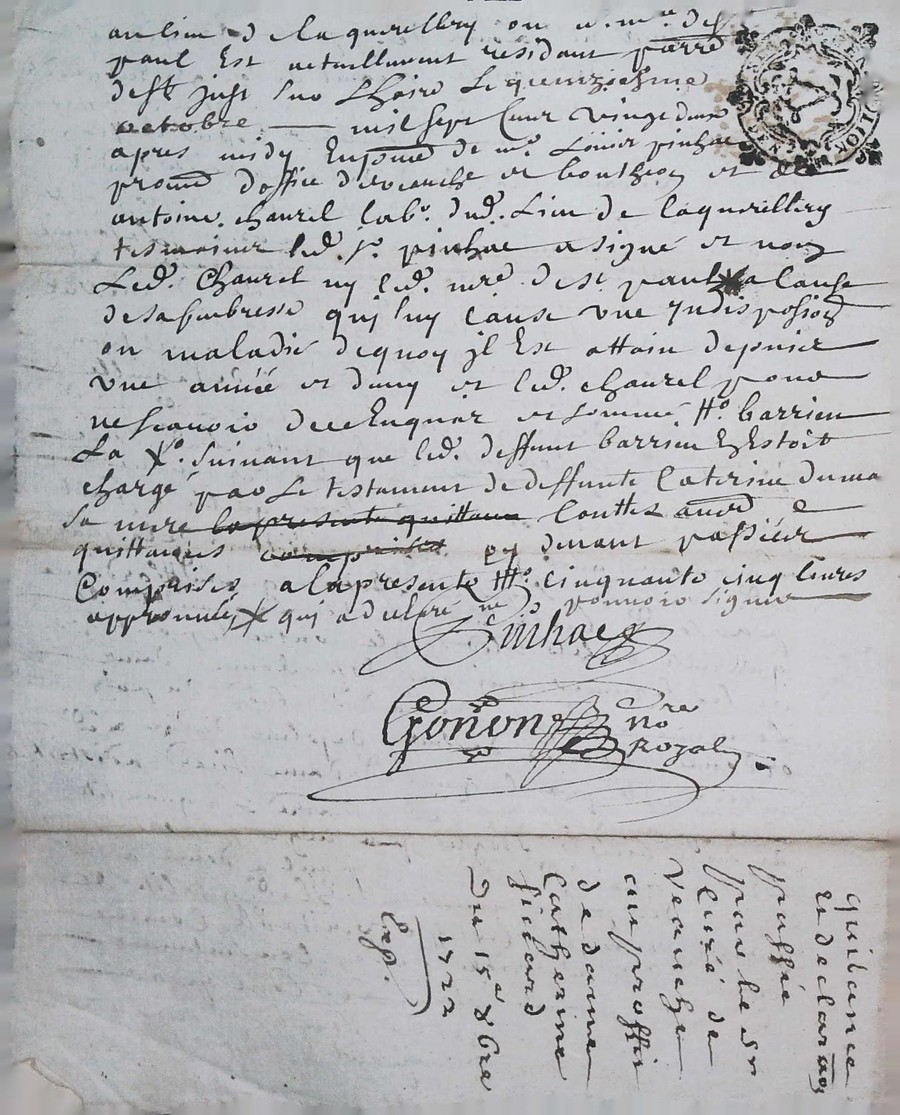 au lieu de laquerellery ou
paul Est actuellement residant parre
de st just sur Lhoire Le quinziesme
octobre mil sept Cens vingt deux
apres midy En de mr. Louis pinhac
d'office de veauche et bontheon et de
antoine chaurel lab.r dud. Lieu de laquerellery
led. sr. pinhac a signé et non
Led. Chaurel ny led. mre. de st paul a Cause
de sa foiblesse quy luy Cause une Indispossion
ou maladie de quoy jl Est attain depuis
une année et et led. chaurel pour
ne scavoir de ce Enquis et sommé barrieu
La suivant que led. deffunt barrieu En Estoit
chargé par Le testament de deffunte Caterine duma
sa mere la presente quittance touttes e
quittances comprises cy devant passées
Comprises a la presente cinquante cinq livres
approuvés qui a declaré ne pouvoir signer
Pinhac
Gonon nore
Royal
Quitance
Et declaraon
passée
par le sr
Curé de
veauche
au proffit
de dame
Catherine
ficard
Du 15e 8bre
1722
Exp.